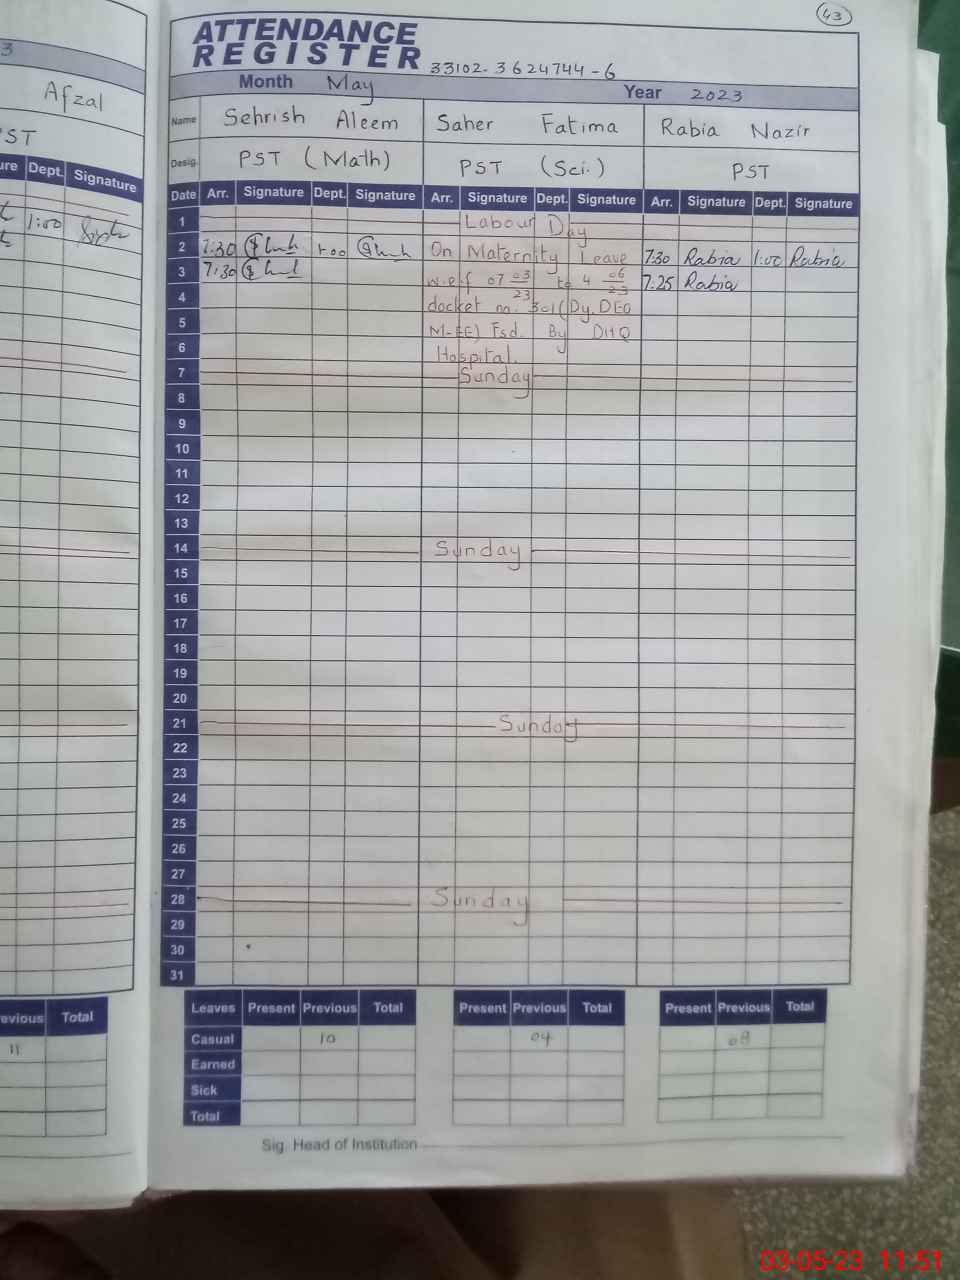 43
ATTENDANCE
REGISTER 33102-3624744-6
Month May Year 2023
Name Sehrish Aleem Saher Fatima Rabia Nazir
Desig. PST (Math) PST (Sci.) PST
Date Arr. Signature Dept. Signature Arr. Signature Dept. Signature Arr. Signature Dept. Signature
1 Labour Day
2 7:30 1:00 On Maternity Leave 7:30 Rabia 1:00 Rabria
3 7:30 w.e.f 07 03/23 to 4 06/23 7:25 Rabia
4 docket no. 301(Dy.DEO
5 M-EE) Fsd. By DHQ
6 Hospital.
7 Sunday
8
9
10
11
12
13
14 Sunday
15
16
17
18
19
20
21 Sunday
22
23
24
25
26
27
28 Sunday
29
30
31
Leaves Present Previous Total Present Previous Total Present Previous Total
Casual 10 04 08
Earned
Sick
Total
Sig. Head of Institution
3
Afzal
PST
Dept. Signature
1:00
evious Total
11
03-05-23 11:51